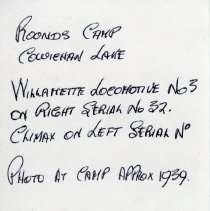 ROONDS CAMP
COWICHAN LAKE
WILLAMETTE LOCOMOTIVE NO 3
ON RIGHT SERIAL NO 32.
CLIMAX ON LEFT SERIAL Nº
PHOTO AT CAMP APPROX 1939.